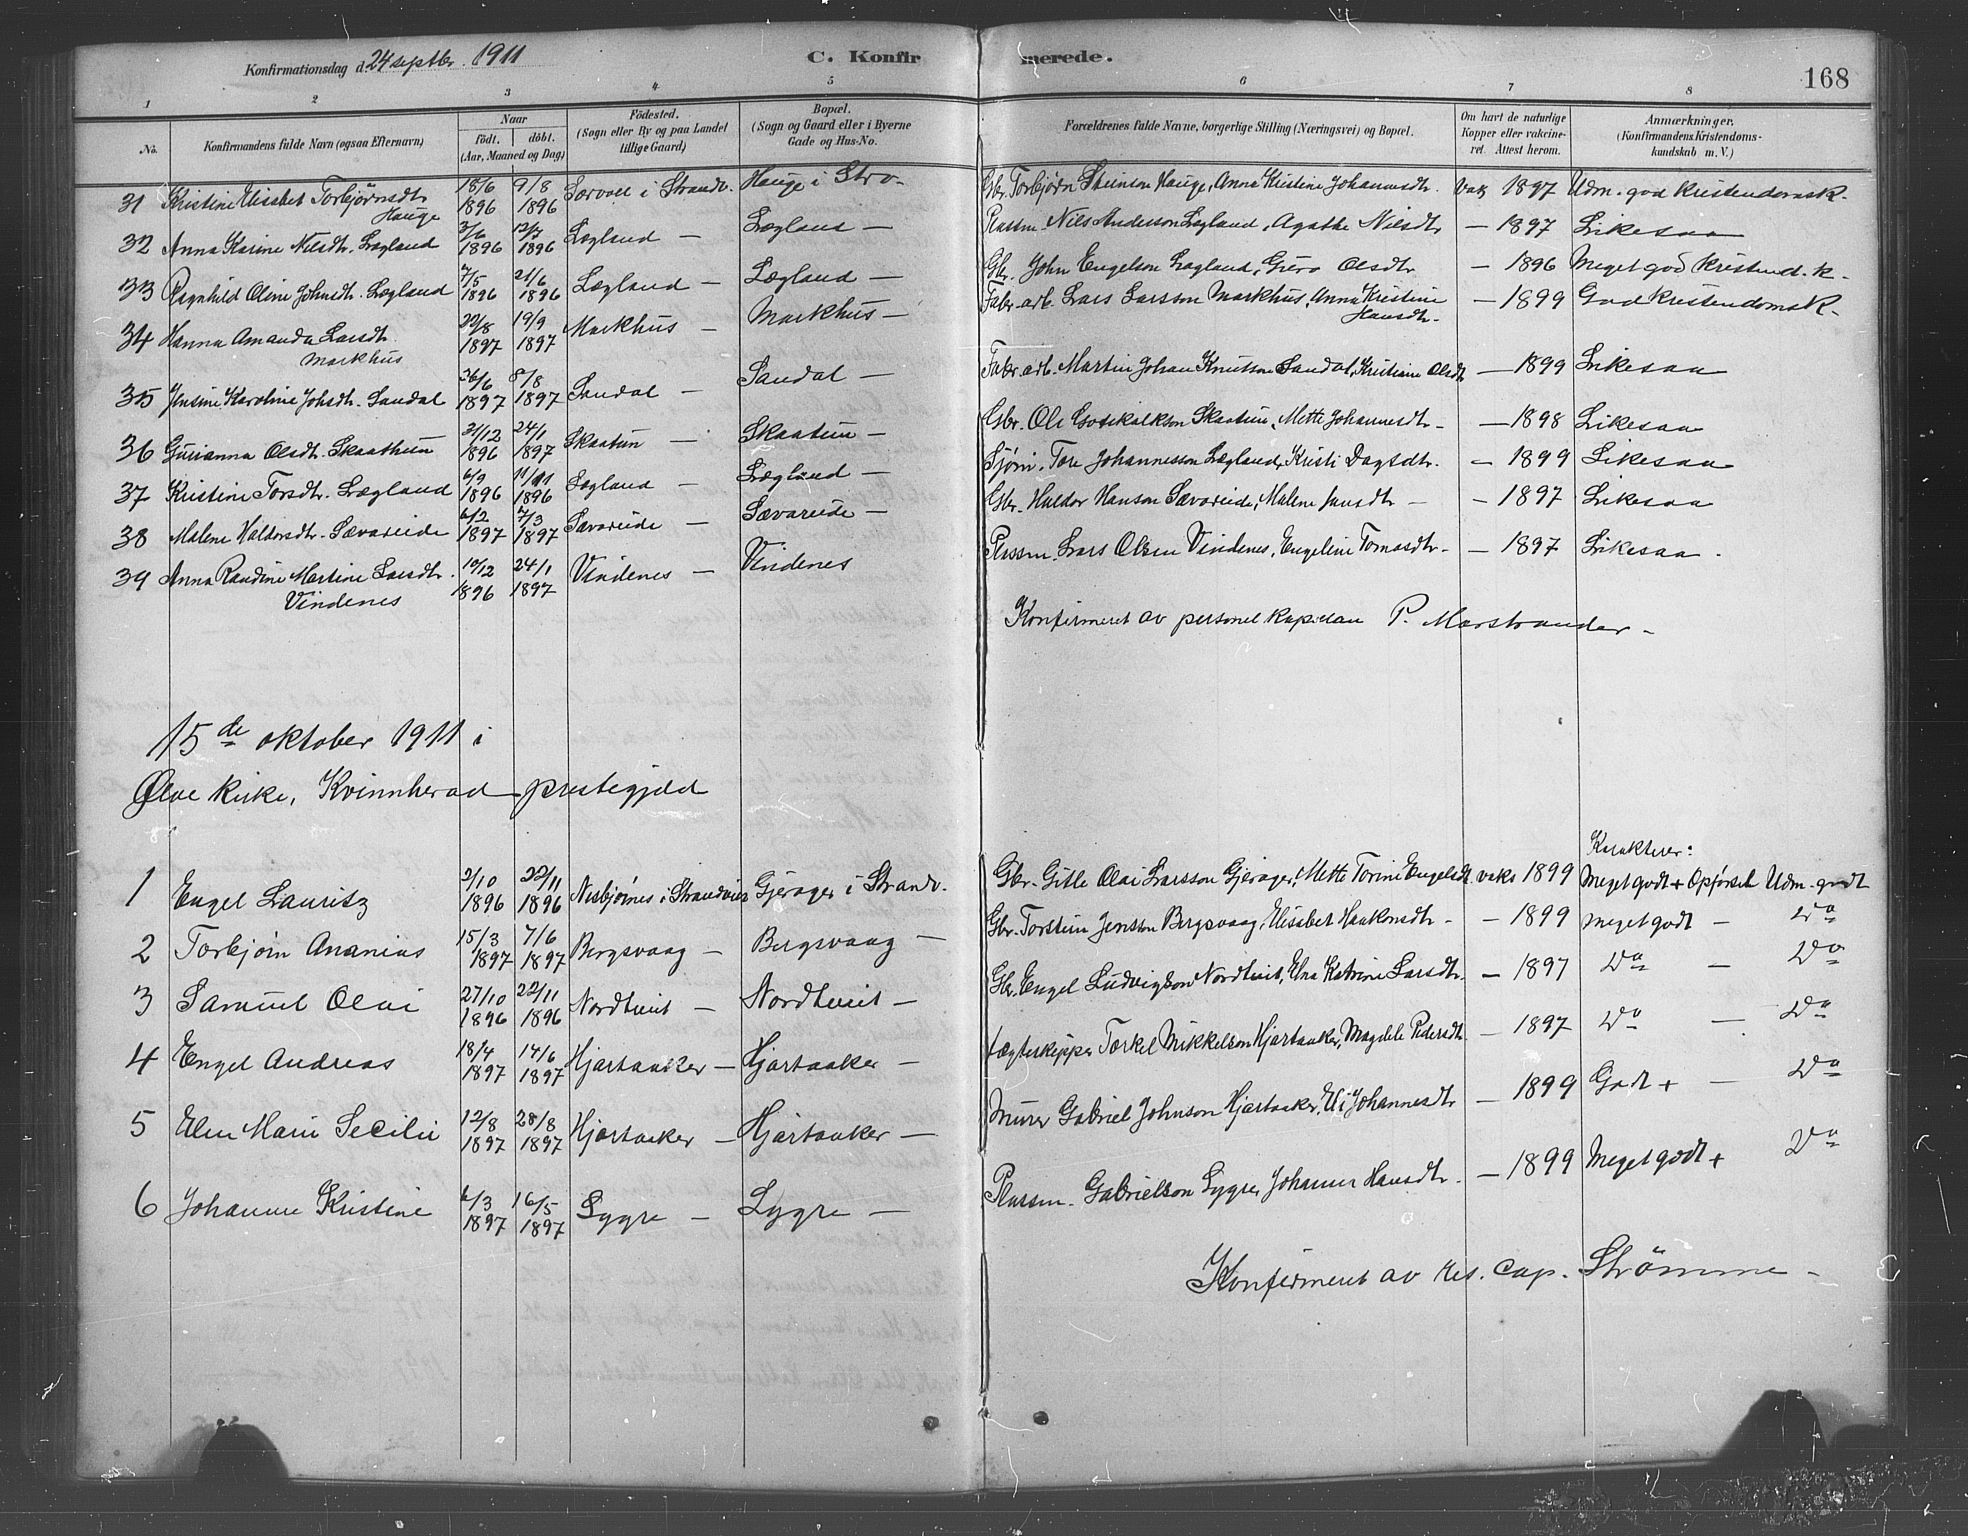 Konfirmationsdag d. 24 septbr. 1911 C. Konfirmerede. 168
1 2 3 4 5 6 7 8
No. Konfirmandens fulde Navn (ogsaa Efternavn) Naar født. døbt. (Aar, Maaned og Dag) Födested. (Sogn eller By og paa Landet tillige Gaard) Bopæl. (Sogn og Gaard eller i Byerne Gade og Hus-No. Forældrenes fulde Navne, borgerlige Stilling (Næringsvei) og Bopæl. Om havt de naturlige Kopper eller vakcineret. Attest herom. Anmærkninger. (Konfirmandens Kristendomskundskab m. V.)
31 Kristine Elisabet Torbjørnsdtr. Hauge 18/6 1896 9/8 1896 i Strandv. Hauge i Strv. Gbr. Torbjørn Steinson Hauge, Anna Kristine Johannesdtr. Vak 1897 Udm. god Kristendomsk.
32 Anna Karine Nilsdtr. Lægland 3/6 1896 12/7 1896 Lægland — Lægland — Plassm Nils Anderson Lægland, Agathe Nilsdtr — 1897 Likesaa
33 Ragnhild Oline Johnsdtr. Lægland 7/5 1896 21/6 1896 Lægland — Lægland — Gbr. John Engelson Lægland, Guro Olsdtr — 1896 Meget god Kristend. k.
34 Hanna Amanda Larsdtr. Markhus 22/8 1897 19/9 1897 Markhus — Markhus — Fabr. arb. Lars Larsson Markhus, Anna Kristine Hansdtr. — 1899 God Kristendomsk.
35 Jensine Karoline Johsdtr. Sandal 26/6 1897 8/8 1897 Sandal — Sandal — Fabr. arb. Martin Johan Knutson Sandal, Kristiane Olsdtr — 1899 Likesaa
36 Gurianna Olsdtr. Skaathun 31/12 1896 24/1 1897 Skaatun — Skaatun — Gbr. Ole Gotskalkson Skaatun, Mette Johannesdtr. — 1898 Likesaa
37 Kristine Torsdtr. Lægland 6/9 1896 11/11 1896 Lægland — Lægland — Sjøm. Tore Johannesson Lægland, Kristi Dagsdtr. — 1899 Likesaa
38 Malene Haldorsdtr. Sævareide 6/2 1897 7/3 1897 Sævareide — Sævareide — Gbr. Haldor Hanson Sævareide, Malene Jansdtr — — 1897 Likesaa
39 Anna Randine Martine Larsdtr. Vindenes 19/12 1896 24/1 1897 Vindenes — Vindenes Plassm. Lars Olsen Vindenes, Engeline Tomasdtr. — 1897 Likesaa.
Konfirmeret av personel Kapellan P. Marstrander.
15de oktober 1911 i
Ølve kirke, Kvinnherad prestegjeld
Karakterer:
1 Engel Lauritz 2/10 1896 22/11 1896 Nesbjørnes i Strandvik Gjerager i Strandv. Gbr. Gitle Olai Larsson Gjerager, Mette Torine Engelsdt. vaks 1899 Meget godt + Opførsel Udm. godt
2 Torbjørn Ananias 15/3 1897 7/6 1897 Bergsvaag — Bergsvaag — Gbr. Torstein Jenson Bergsvaag, Elisabet Haakonsdtr — — 1899 meget godt — Do
3 Samuel Olai 27/10 1896 22/11 1896 Nordtveit — Nordtveit — Gbr. Engel Ludvigson Nordtveit, Elna Katrine Larsdtr. — 1897 Do — Do
4 Engel Andreas 18/4 1897 14/6 1897 Hjartaaker — Hjartaaker — Fægteskipper Torkel Mikkelson Hjartaaker, Magdele Pedersdt. — 1897 Do — Do
5 Elen Marie Secilie 12/8 1897 28/8 1897 Hjartaaker — Hjartaaker — Murer Gabriel Johnson Hjartaaker, Eli Johannesdt — 1899 Godt + — Do
6 Johanne Kristine 6/3 1897 16/5 1897 Lygre — Lygre — Plassm. Gabrielson Lygre, Johanne Hansdt. — 1899 Meget godt + Do
Konfirmeret av res. cap. Strømme.